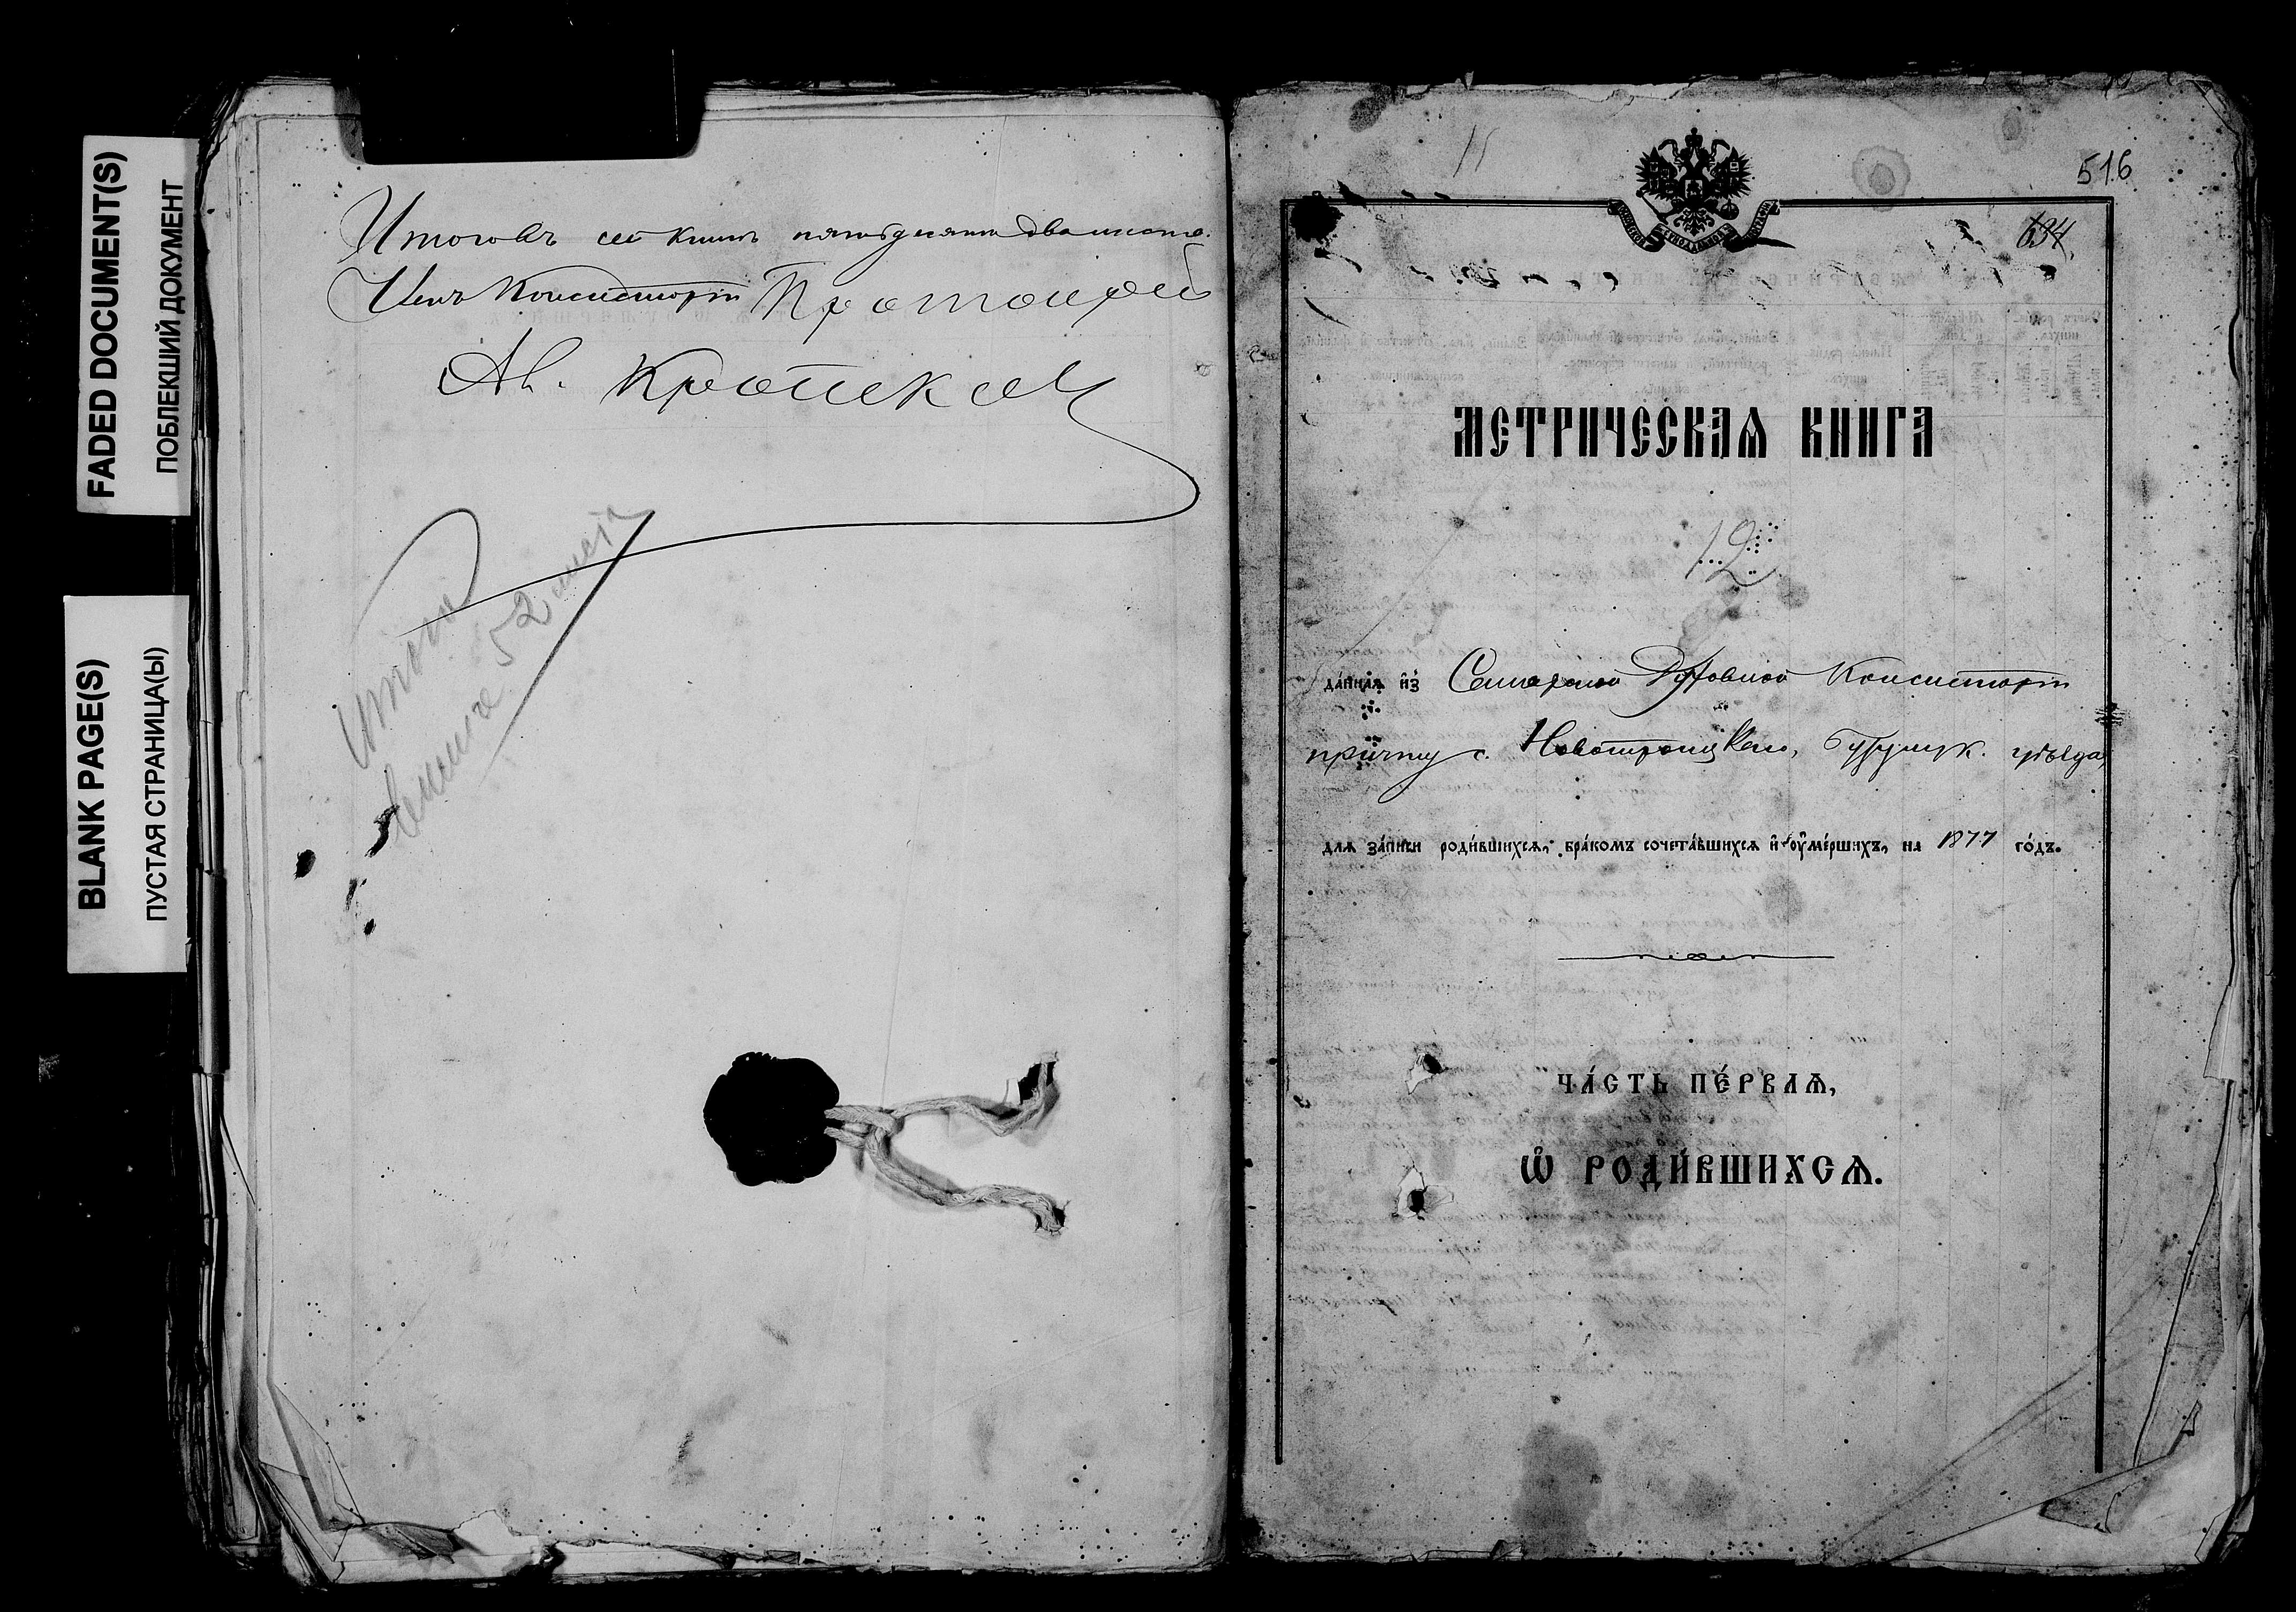 FADED DOCUMENT(S)
ПОБЛЕКШИЙ ДОКУМЕНТ
BLANK PAGE(S)
ПУСТАЯ СТРАНИЦА(Ы)
Итого въ сей книгѣ пятьдесятъ два листа.
Членъ Консисторіи Протоіерей
Ав.
Итого
52 листа
11
516
634
МЕТРИЧЕСКАѦ КНИГА
12
да́ннаѧ и҆з̾ Самарской Духовной Консисторіи
причту с. Новотроицкаго, Бузулук. уѣзда,
длѧ за́писи роди́вшихсѧ, бра́комъ сочета́вшихсѧ и҆ ᲂу҆ме́ршихъ, на 1877 го́дъ.
ЧА́СТЬ ПЕ́РВАѦ,
Ѽ РОДИ́ВШИХСѦ.